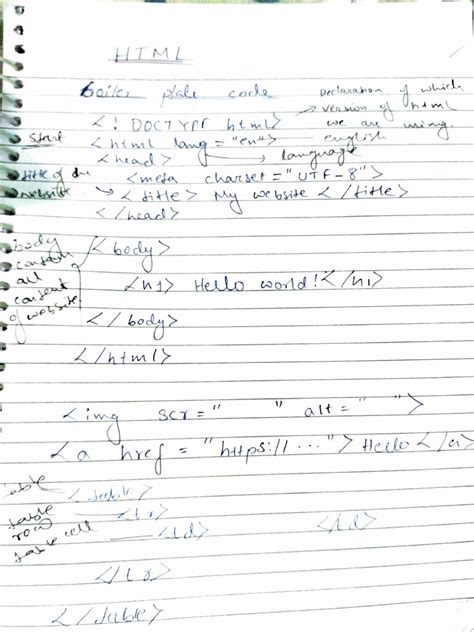 HTML
boiler plate code
Declaration of which
version of html
we are using.
<! DOCTYPF html>
Start
<html lang = "en"> english
<head> language
title of du
website
<meta charset = "UTF-8">
<title> My website </title>
</head>
body
contain
all
content
of website
<body>
<h1> Hello world! </h1>
</body>
</html>
<img scr = " " alt = " ">
<a href = "https:// ..."> Hello </a>
table <table>
table
row <tr>
table cell <td> <td>
</tr>
</table>